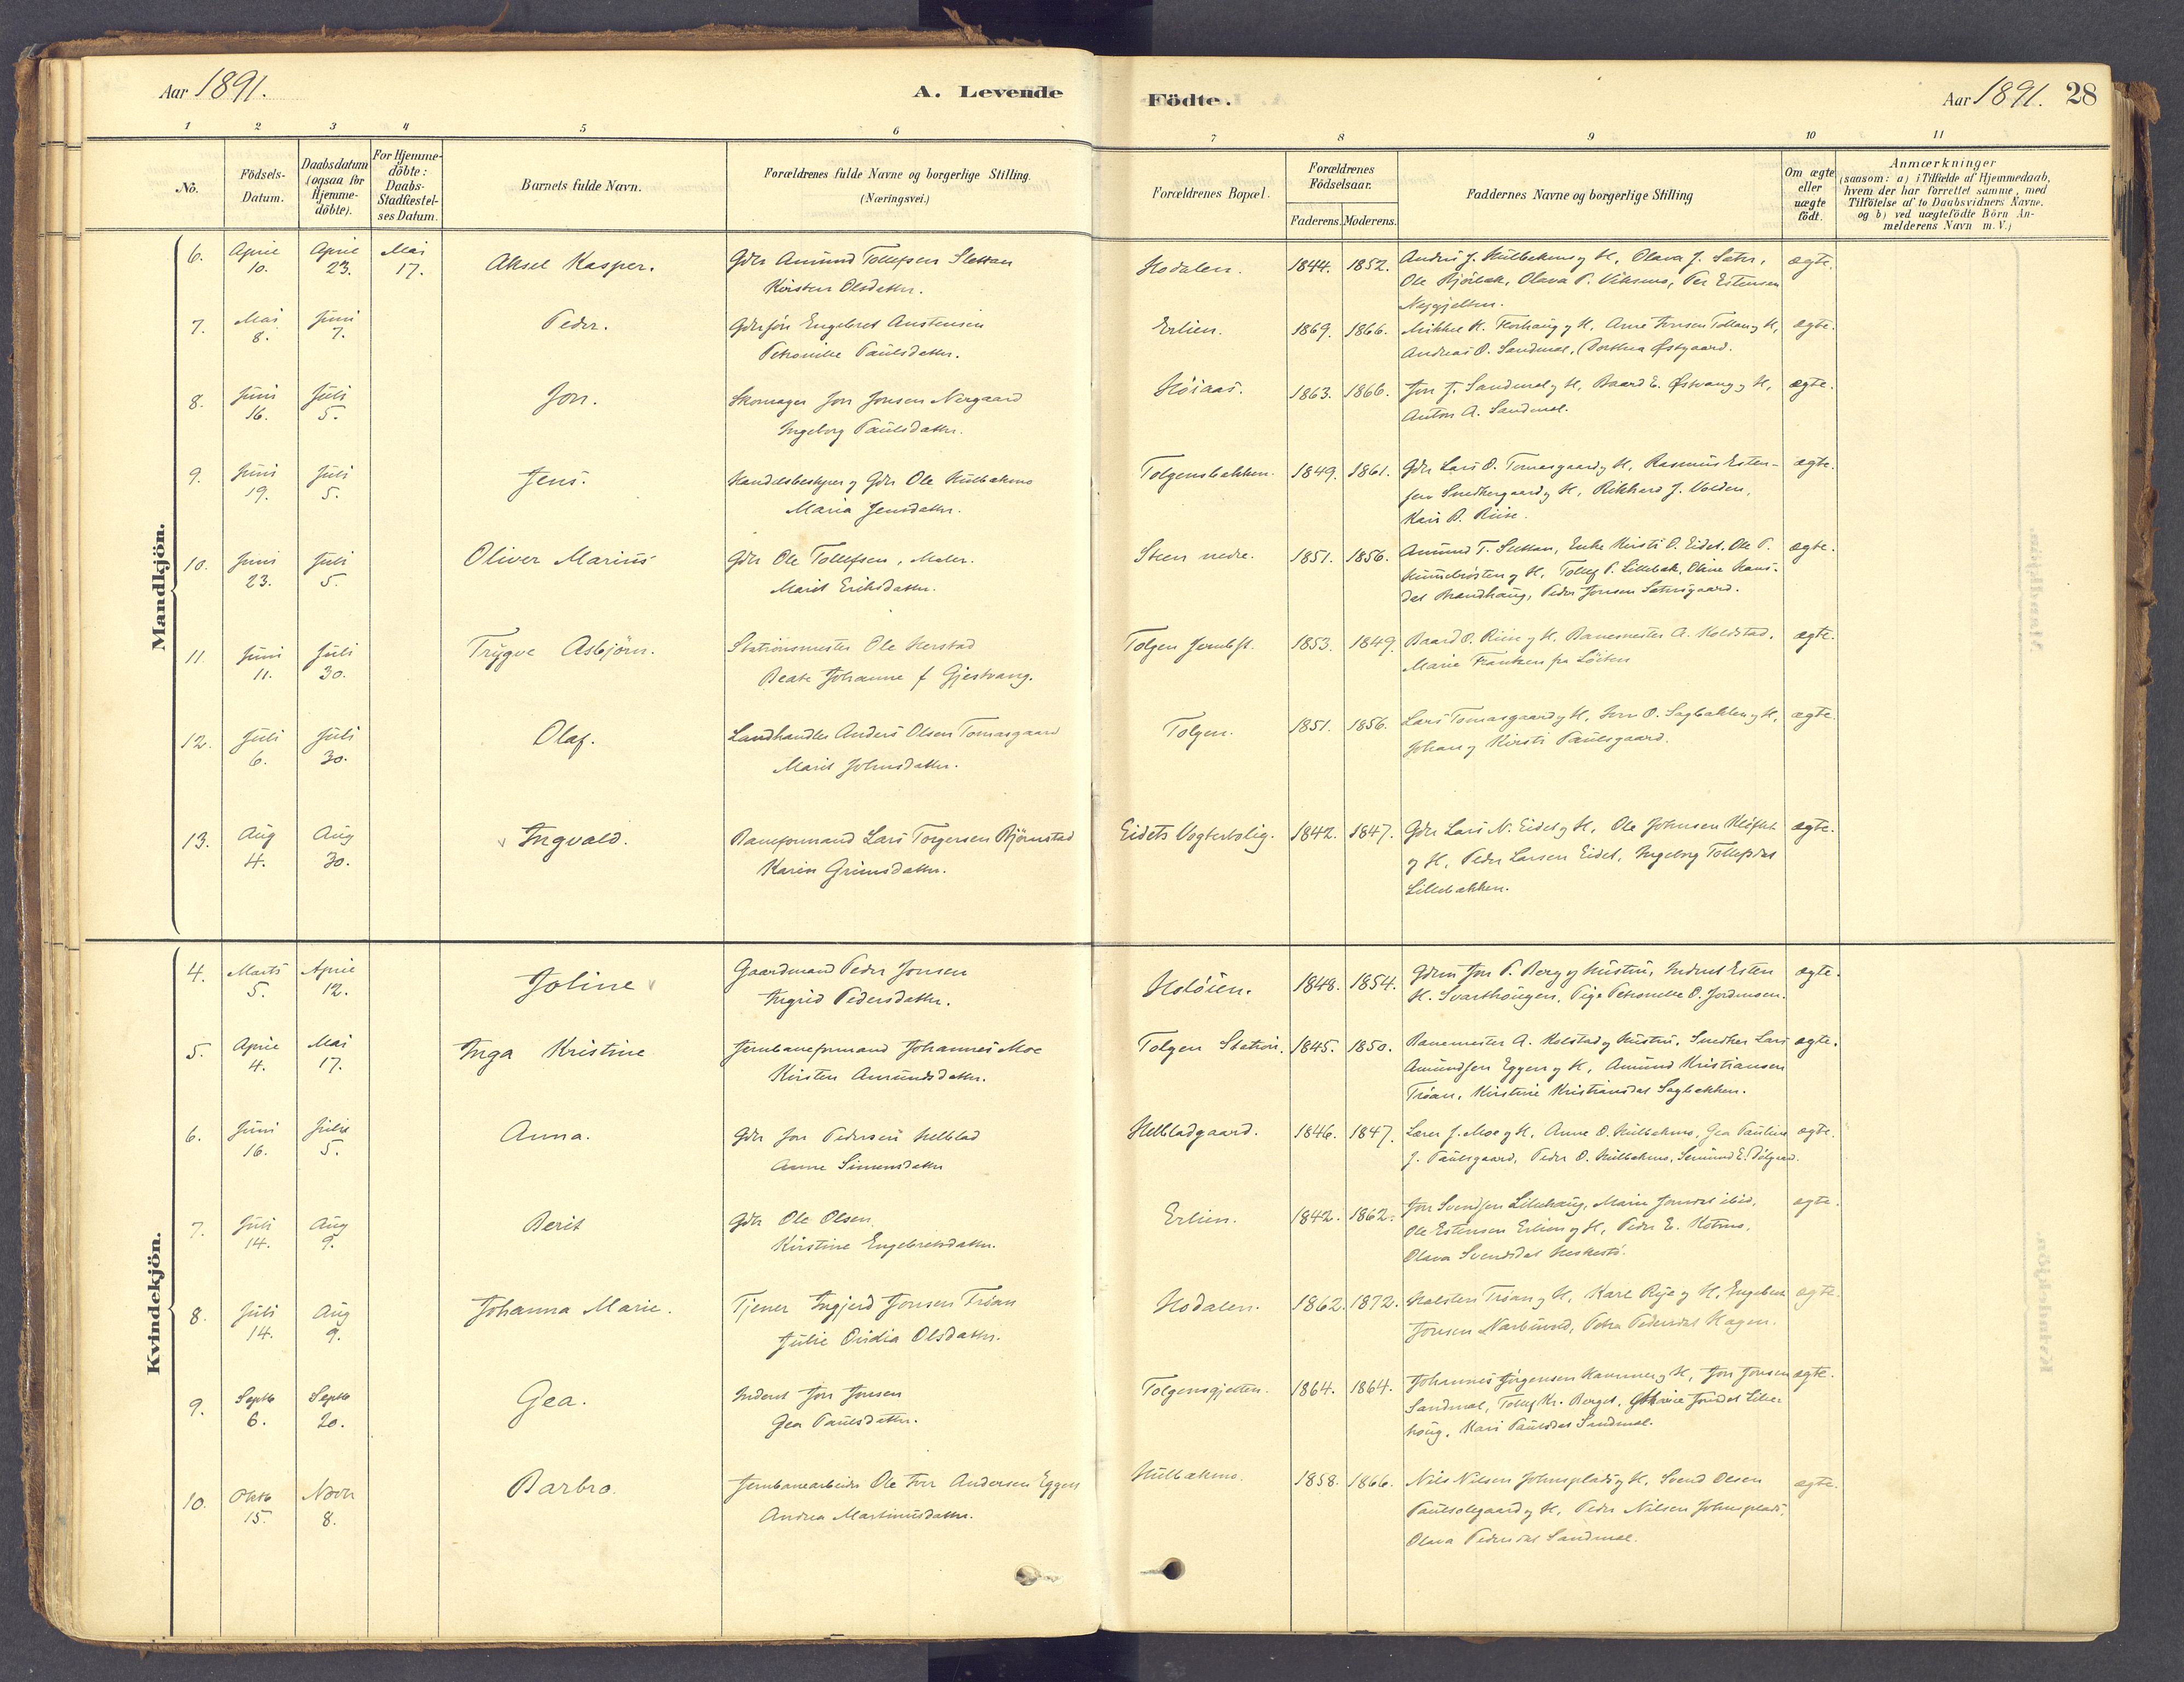 Aar 1891.
A. Levende
Födte.
Aar 1891. 28
1 2 3 4 5 6 7 8 9 10 11
No.
Födsels-
Datum.
Daabsdatum
(ogsaa for
Hjemme-
döbte).
For Hjemme-
döbte:
Daabs-
Stadfæstel-
ses Datum.
Barnets fulde Navn.
Forældrenes fulde Navne og borgerlige Stilling.
(Næringsvei.)
Forældrenes Bopæl.
Forældrenes
Födselsaar.
Faderens. Moderens.
Faddernes Navne og borgerlige Stilling
Om ægte
eller
uægte
födt.
Anmærkninger
(saasom: a) i Tilfælde af Hjemmedaab,
hvem der har forrettet samme, med
Tilföielse af to Daabsvidners Navne,
og b) ved uægtefödte Börn An-
melderens Navn m.V.)
Mandkjön.
6. April 10. April 23. Mai 17. Aksel Kasper. Gdr Amund Tollefsen Slettan
Kirsten Olsdatter.
Hodalen. 1844. 1852. Anders J. Kulbekmo og H, Olava J. Sæter,
Ole Bjørbæk, Olava P. Vikmo, Per Estensen
ægte.
7. Mai 8. Juni 7. Peder. Gdrsøn Engebret Austensen
Petronille Paulsdatter.
Erlien. 1869. 1866. Mikkel K. Korhaug og H, Arne Jonsen Tollan og H,
Andreas O. Sandmæl, Dorthea Østgaard.
ægte.
8. Juni 16. Juli 5. Jon. Skomager Jon Jonsen Nergaard
Ingeborg Paulsdatter.
Høiaas. 1863. 1866. Jon J. Sandmæl og H, Baard E. Østvang og H,
Anton A. Sandmæl.
ægte.
9. Juni 19. Juli 5. Jens. Handelsbestyrer og Gdr Ole Kulbækmo
Maria Jensdatter.
Tolgensbakken. 1849. 1861. Gdr Lars O. Tomasgaard og H, Rasmus Esten-
sen Snedkergaard og H, Rikhard J. Volden,
Kari B. Riise.
ægte.
10. Juni 23. Juli 5. Oliver Marius Gdr Ole Tollefsen, Maler.
Marit Eriksdatter.
Steen nedre. 1851. 1856. Amund T. Slettan, Enke Kirsti O. Eidet, Ole P.
Kummelvolsten og H, Tollef P. Lillebæk, Oline Hans-
dat Brandhaug, Peder Jonsen Sætersgaard.
ægte.
11. Juni 11. Juli 30. Trygve Asbjörn. Stationsmester Ole Herstad
Beate Johanne f Gjestvang.
Tolgen Jernbst. 1853. 1849. Baard O. Riise og H. Banemester A. Kolstad,
Marie Frantzen fra Löiten
ægte.
12. Juli 6. Juli 30. Olaf. Landhandler Anders Olsen Tomasgaard
Marit Johnsdatter.
Tolgen. 1851. 1856. Lars Tomasgaard og H, Jon O. Sagbakken og H,
Johan og Kirsti Paulsgaard.
ægte.
13. Aug 4. Aug 30. Ingvald. Baneformand Lars Torgersen Björnstad
Karen Grimsdatter.
Eidets Vogterbolig. 1842. 1847. Gdr Lars N. Eidet og H, Ole Johnsen Kløfte
og H, Peder Larsen Eidet, Ingeborg Tollefsdat
Lillebakken.
ægte.
Kvindekjön.
4. Marts 5. April 12. Joline Gaardmand Peder Jonsen
Ingrid Pedersdatter.
Holöien. 1848. 1854. Gdrm Jon P. Berg og Hustru, Inderst Esten
H. Svarthaugen, Pige Petronelle O. Jordmoen.
ægte.
5. April 4. Mai 17. Inga Kristine Jernbaneformand Johannes Moe
Kirsten Amundsdatter.
Tolgen Station. 1845. 1850. Banemester A. Kolstad og Hustru, Snedker Lars
Amundsen Eggen og H, Amund Kristiansen
Trøan, Kirstine Kristiansdat Sagbakken.
ægte.
6. Juni 16. Juli 5. Anna. Gdr Jon Pedersen Helblad
Anne Simensdatter
Helbladgaard. 1846. 1847. Lærer J. Moe og H, Anne O. Kulbækmo, Gea Pauline
J. Paulsgaard, Peder O. Kulbækmo, Semund E. Dølgaard.
ægte.
7. Juli 14. Aug 9. Berit Gdr Ole Olsen.
Kirstine Engebretsdatter.
Erlien. 1842. 1862. Jon Svendsen Lillehaug, Marie Jonsdat ibid,
Ole Estensen Erlien og H, Peder E. Kotmo,
Olava Svendsdat
ægte.
8. Juli 14. Aug 9. Johanna Marie. Tjener Ingjerd Jonsen Trøan
Julie Ovidia Olsdatter.
Hodalen. 1862. 1872. Halsten Trøan og H, Karl Rye og H, Engebret
Jonsen Narbuvold, Petra Pedersdat Hagen.
ægte.
9. Septb 6. Septb 20. Gea. Inderst Jon Jonsen
Gea Paulsdatter.
Tolgensgjelten. 1864. 1864. Johannes Jørgensen Kammen og H, Jon Jonsen
Sandmæl, Tollef Kr. Berget, Jonsdat Lille-
haug, Kari Paulsdat Sandmæl.
ægte.
10. Oktb 15. Novr 8. Barbro. Jernbanearbeider Ole Jon Andersen Eggen
Andrea Martinusdatter.
Kulbækmo. 1858. 1866. Nils Nilsen Johnsplads og H, Svend Olsen
Paulsolsgaard og H, Peder Nilsen Johnsplads,
Olava Pedersdat Sandmæl.
ægte.